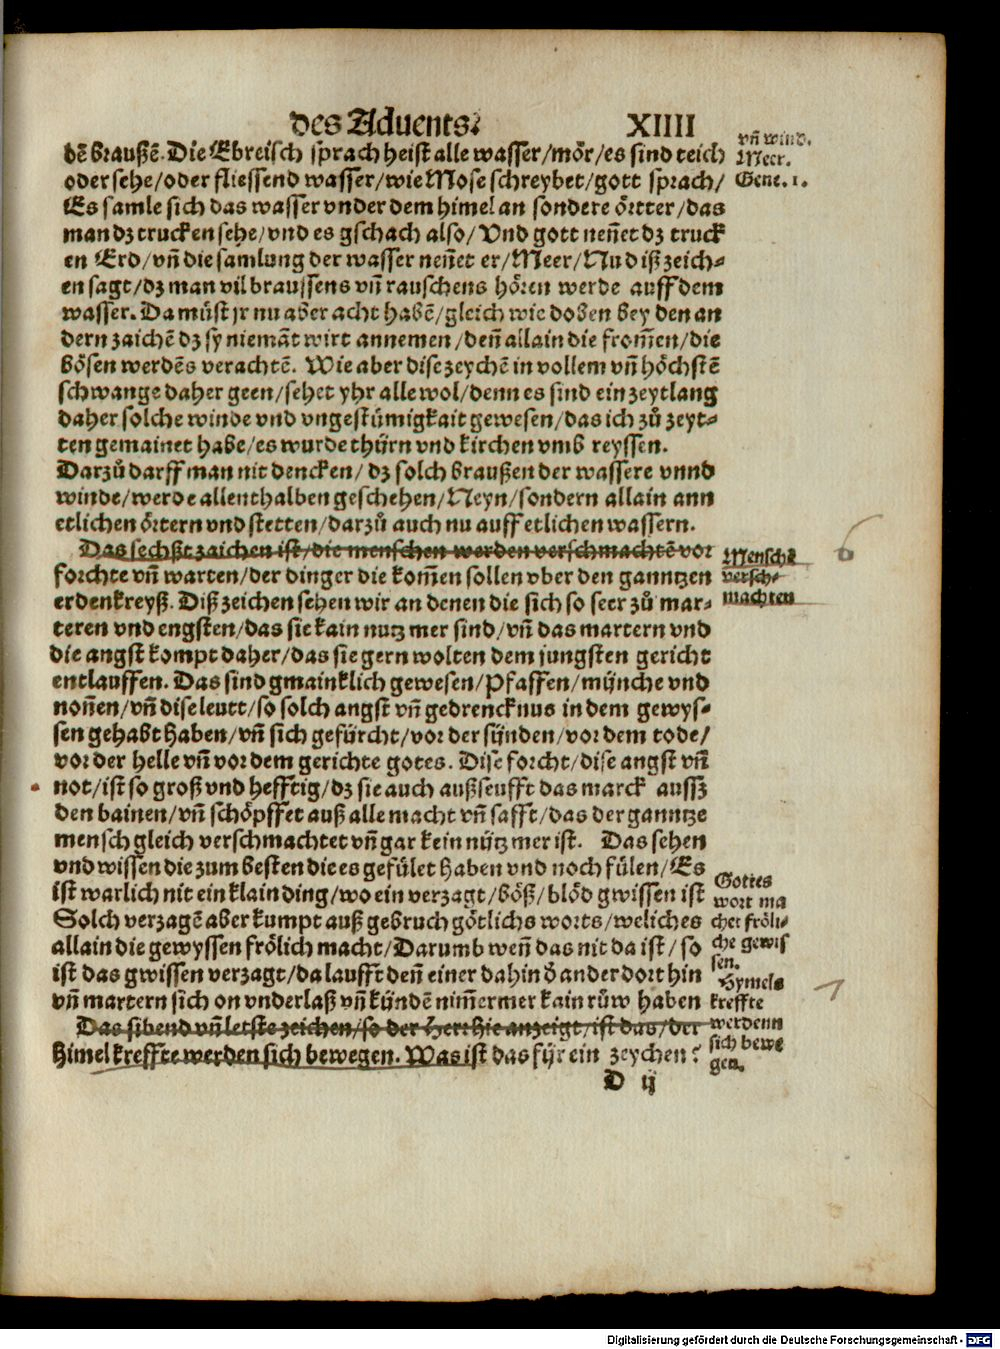 des Aduents. XIIII
dē braußē. Die Ebreisch sprach heist alle wasser/mör/es sind teich
oder sehe/oder fliessend wasser/wie Mose schreybet/gott sprach/
Es samle sich das wasser vnder dem himel an sondere örtter/das
man dz trucken sehe/vnd es gschach also/Vnd gott neñet dz truck
en Erd/vñ die samlung der wasser neñet er/Meer/Nu diß zeich-
en sagt/dz man vil braussens vñ rauschens hören werde auff dem
wasser. Da müst jr nu aber acht habē/gleich wie doben bey den an
dern zaichē dz sy niemāt wirt annemen/deñ allain die from̄en/die
bösen werdēs verachtē. Wie aber dise zeychē in vollem vñ höchstē
schwange daher geen/sehet yhr alle wol/denn es sind ein zeytlang
daher solche winde vnd vngestümigkait gewesen/das ich zů zeyt-
ten gemainet habe/es wurde thürn vnd kirchen vmb reyssen.
Darzů darff man nit dencken/dz solch braußen der wassere vnnd
winde/werde allenthalben geschehen/Neyn/sondern allain ann
etlichen örtern vnd stetten/darzů auch nu auff etlichen wassern.
Das sechßt zaichen ist/die menschen werden verschmachtē vor
forchte vñ warten/der dinger die kom̄en sollen vber den ganntzen
erdenkreyß. Diß zeichen sehen wir an denen die sich so seer zů mar-
teren vnd engsten/das sie kain nutz mer sind/vñ das martern vnd
die angst kompt daher/das sie gern wolten dem jungsten gericht
entlauffen. Das sind gmainklich gewesen/Pfaffen/münche vnd
noñen/vñ dise leutt/so solch angst vñ gedrencknus in dem gewys-
sen gehabt haben/vñ sich gefürcht/vor der sünden/vor dem tode/
vor der helle vñ vor dem gerichte gotes. Dise forcht/dise angst vñ
not/ist so groß vnd hefftig/dz sie auch außseufft das marck aussz
den bainen/vñ schöpffet auß alle macht vñ safft/das der ganntze
mensch gleich verschmachtet vñ gar kein nütz mer ist. Das sehen
vnd wissen die zum besten die es gefület haben vnd noch fülen/Es
ist warlich nit ein klain ding/wo ein verzagt/böß/blöd gwissen ist
Solch verzagē aber kumpt auß gebruch götlichs worts/weliches
allain die gewyssen frölich macht/Darumb weñ das nit da ist/so
ist das gwissen verzagt/da laufft deñ einer dahin ð ander dort hin
vñ martern sich on vnderlaß vñ kündē nim̄ermer kain růw haben
Das sibend vñ letste zeichen/so der Herr hie anzeigt/ist das/der
himel kreffte werden sich bewegen. Was ist das für ein zeychen?
D ij
vñ wind.
Meer.
Gene. 1.
Menschē
versch-
machten
6
Gottes
wort ma
chet fröli-
che gewis
sen.
Hymels
kreffte
werdenn
sich bewe
gen.
7
Digitalisierung gefördert durch die Deutsche Forschungsgemeinschaft - DFG